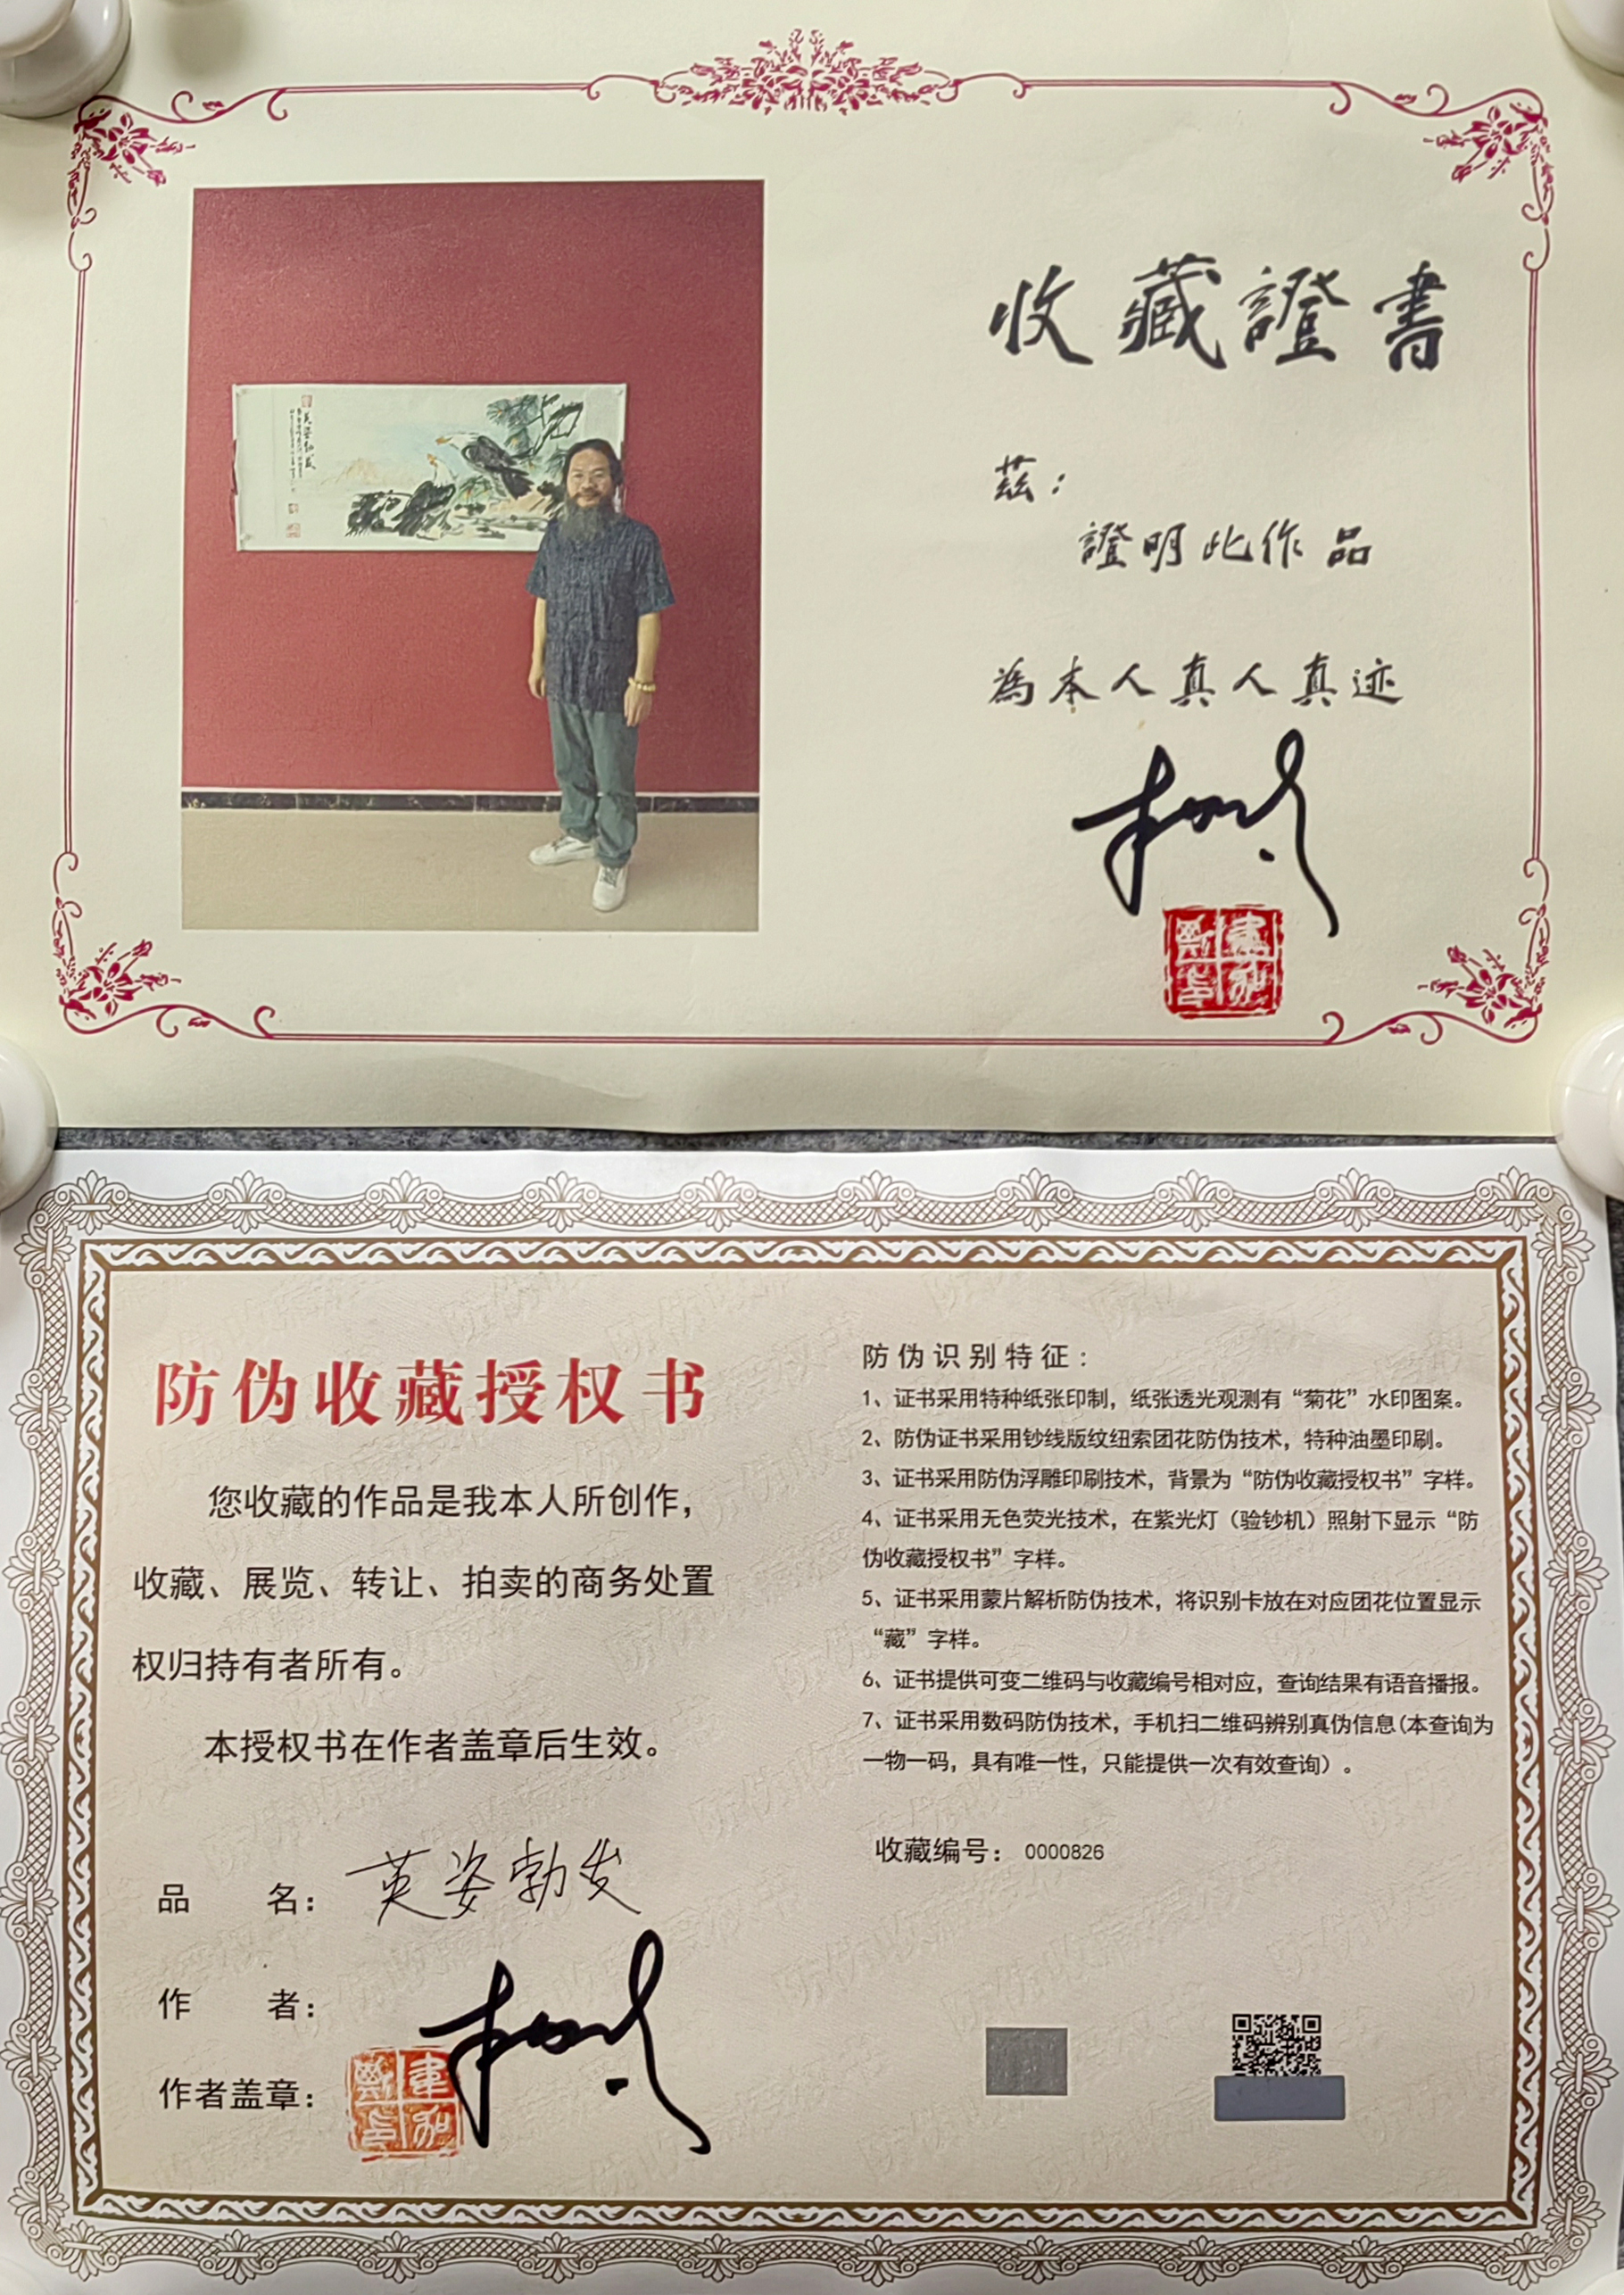 收藏證書
茲：
證明此作品
為本人真人真迹
英姿勃發
防伪收藏授权书
您收藏的作品是我本人所创作，
收藏、展览、转让、拍卖的商务处置
权归持有者所有。
本授权书在作者盖章后生效。
品 名：英姿勃发
作 者：
作者盖章：
防伪识别特征：
1、证书采用特种纸张印制，纸张透光观测有“菊花”水印图案。
2、防伪证书采用钞线版纹纽索团花防伪技术，特种油墨印刷。
3、证书采用防伪浮雕印刷技术，背景为“防伪收藏授权书”字样。
4、证书采用无色荧光技术，在紫光灯（验钞机）照射下显示“防
伪收藏授权书”字样。
5、证书采用蒙片解析防伪技术，将识别卡放在对应团花位置显示
“藏”字样。
6、证书提供可变二维码与收藏编号相对应，查询结果有语音播报。
7、证书采用数码防伪技术，手机扫二维码辨别真伪信息(本查询为
一物一码，具有唯一性，只能提供一次有效查询）。
收藏编号：0000826